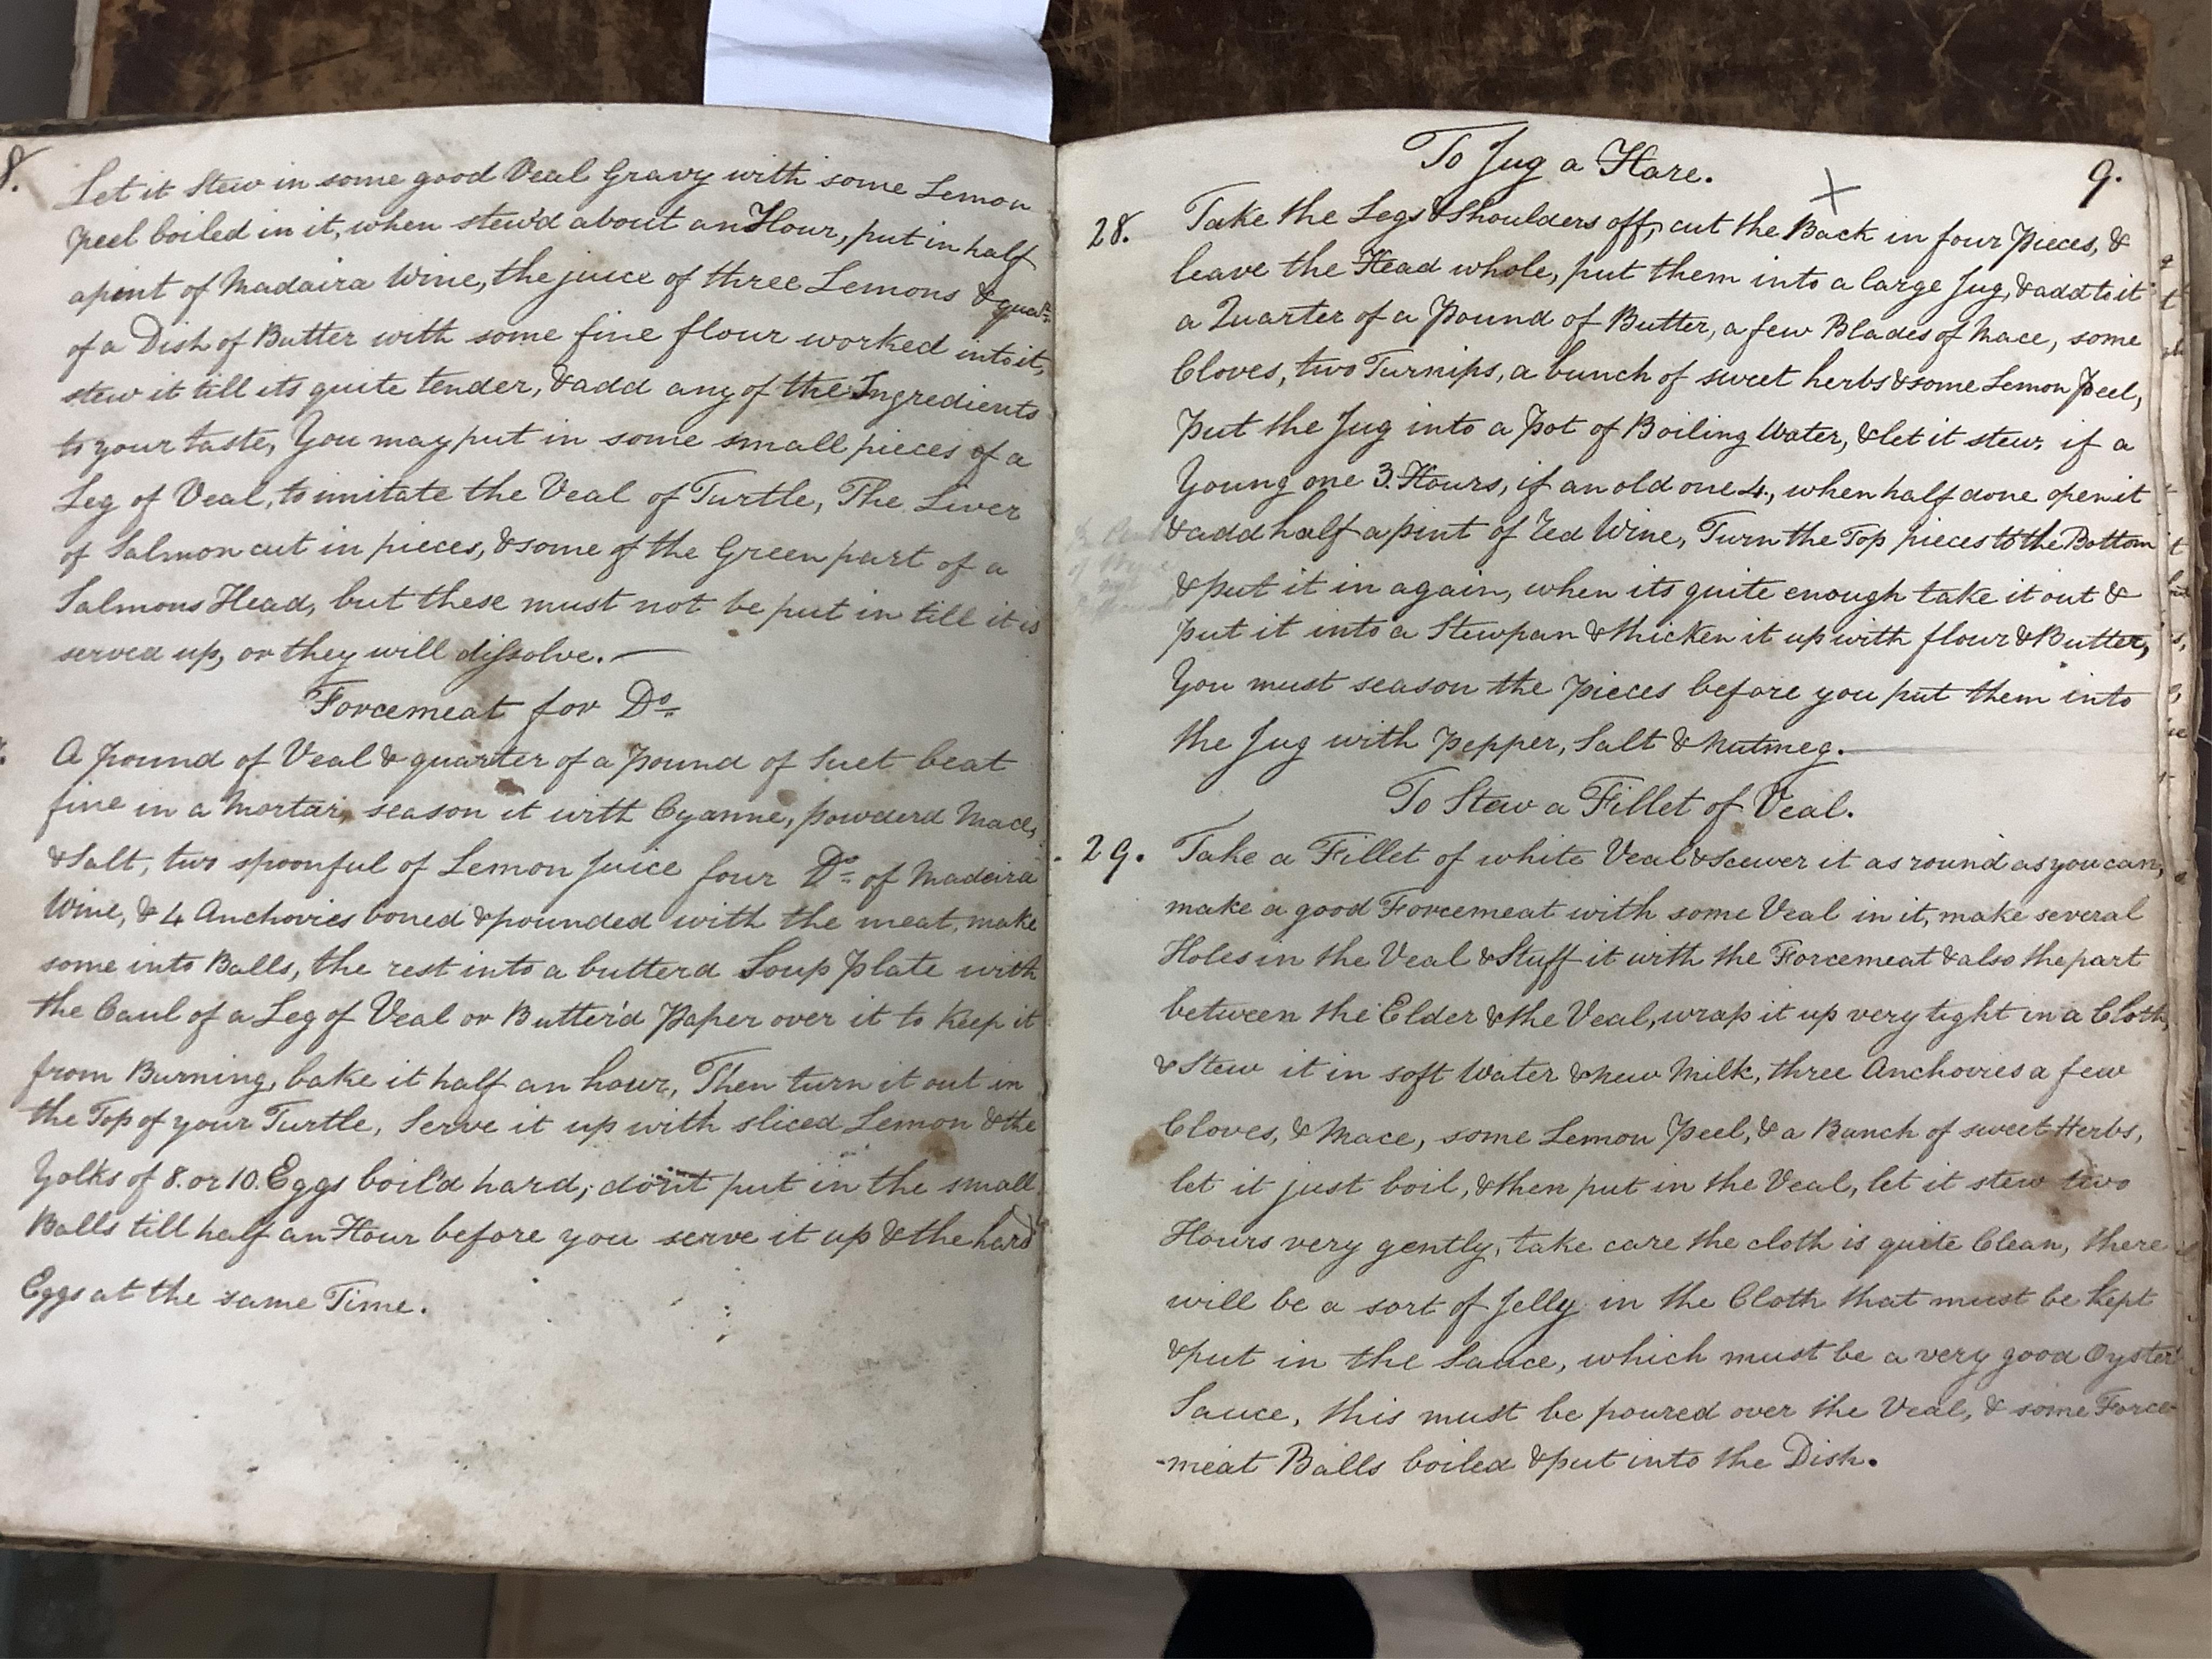 8.
Let it Stew in some good Veal Gravy with some Lemon
peel boiled in it, when stew'd about an Hour, put in half
a pint of Madaira Wine, the juice of three Lemons & quar.tr
of a Dish of Butter with some fine flour worked into it,
stew it till its quite tender, & add any of the Ingredients
to your taste, You may put in some small pieces of a
Leg of Veal, to imitate the Veal of Turtle, The Liver
of Salmon cut in pieces, & some of the Green part of a
Salmons Head, but these must not be put in till it is
served up, or they will dissolve.—
Forcemeat for Do.
A pound of Veal & quarter of a pound of Suet beat
fine in a Mortar, season it with Cyanne, powderd Mace,
& Salt, two spoonful of Lemon Juice four Do. of Madeira
Wine, & 4 Anchovies boned & pounded with the meat, make
some into Balls, the rest into a butterd Soup plate with
the Caul of a Leg of Veal or Butter'd Paper over it to Keep it
from Burning, bake it half an hour, Then turn it out in
the Top of your Turtle, Serve it up with sliced Lemon & the
Yolks of 8. or 10. Eggs boil'd hard; don't put in the small
Balls till half an Hour before you serve it up & the hard
Eggs at the same Time.
To Jug a Hare.
9.
28. Take the Legs & Shoulders off, cut the Back in four pieces, &
leave the Head whole, put them into a large Jug, & add to it
a Quarter of a Pound of Butter, a few Blades of Mace, some
Cloves, two Turnips, a bunch of sweet herbs & some Lemon Peel,
Put the Jug into a Pot of Boiling Water, & let it stew, if a
Young one 3. Hours, if an old one 4., when half done open it
& add half a pint of Red Wine, Turn the Top pieces to the Bottom
& put it in again, when its quite enough take it out &
put it into a Stewpan & thicken it up with flour & Butter,
You must season the pieces before you put them into
the Jug with Pepper, Salt & Nutmeg.—
To Stew a Fillet of Veal.
29. Take a Fillet of white Veal & Scewer it as round as you can,
make a good Forcemeat with some Veal in it, make several
Holes in the Veal & Stuff it with the Forcemeat & also the part
between the Elder & the Veal, wrap it up very tight in a Cloth,
& Stew it in soft Water & new Milk, three Anchovies a few
Cloves, & Mace, some Lemon Peel, & a Bunch of sweet Herbs,
let it just boil, & then put in the Veal, let it stew two
Hours very gently, take care the cloth is quite Clean, there
will be a sort of Jelly in the Cloth that must be Kept
& put in the Sauce, which must be a very good Oyster
Sauce, this must be poured over the Veal, & some Force-
-meat Balls boiled & put into the Dish.